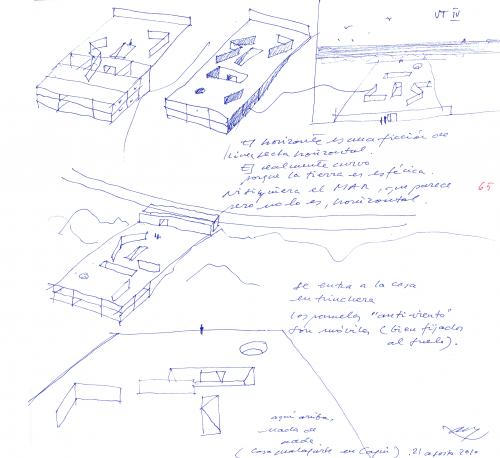 VT IV
El horizonte es una ficción de
línea recta horizontal.
Es realmente curvo
porque la tierra es esférica.
Ni siquiera el MAR, que parece
serlo, no lo es, horizontal.
65
Se entra a la casa
en trinchera
Los paneles "anti-viento"
son móviles (bien fijados
al suelo).
aquí arriba,
nada de
nada
(Casa malaparte en Capri). 21 agosto 2010